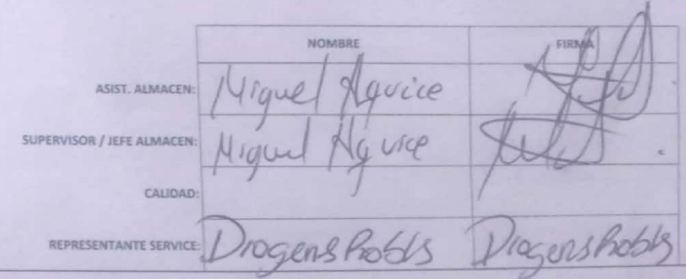 NOMBRE FIRMA
ASIST. ALMACEN: Miguel Aquice
SUPERVISOR / JEFE ALMACEN: Miguel Aquice
CALIDAD:
REPRESENTANTE SERVICE: Diogens Robls Diogens Robls